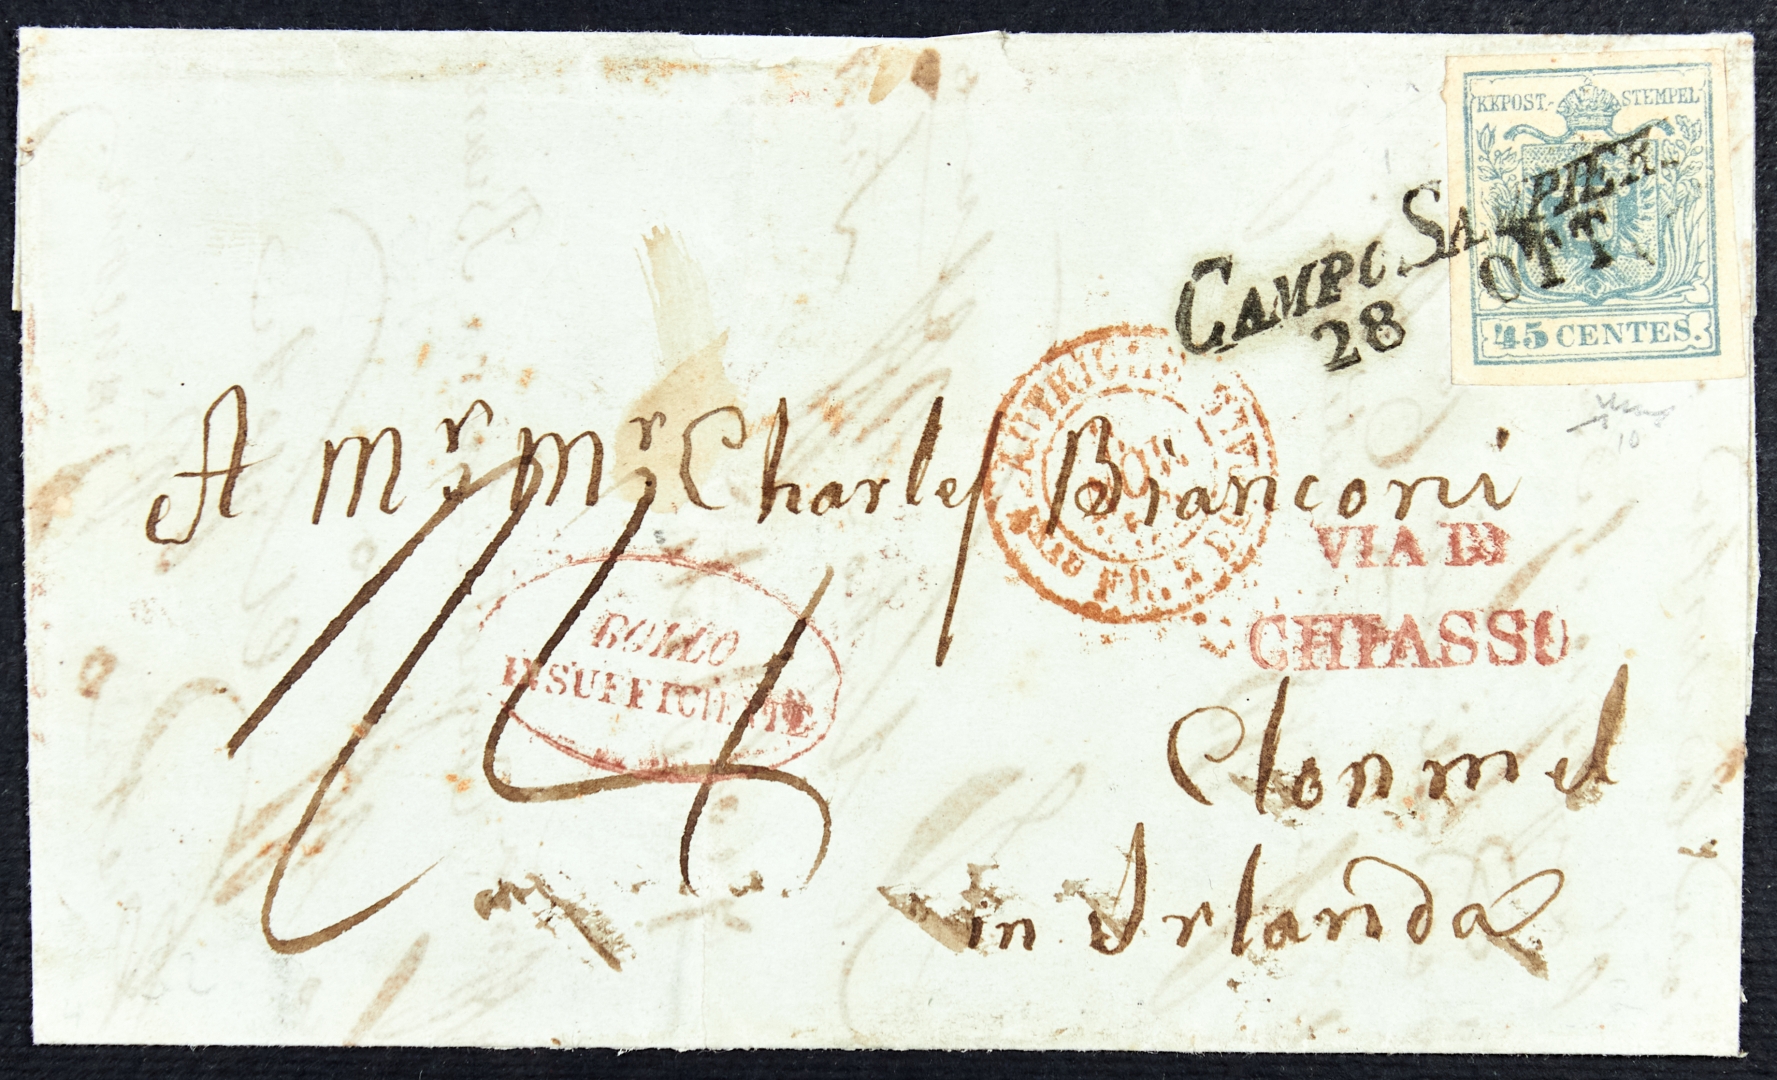 KKPOST-STEMPEL
45 CENTES.
CAMPO SAMPIER-
OTT
28
AUTRICHE
FR.
A Mr. Mr. Charles Bianconi
VIA DI
CHIASSO
BOLLO
INSUFFICIENTE
Clonmel
in Irlanda
10